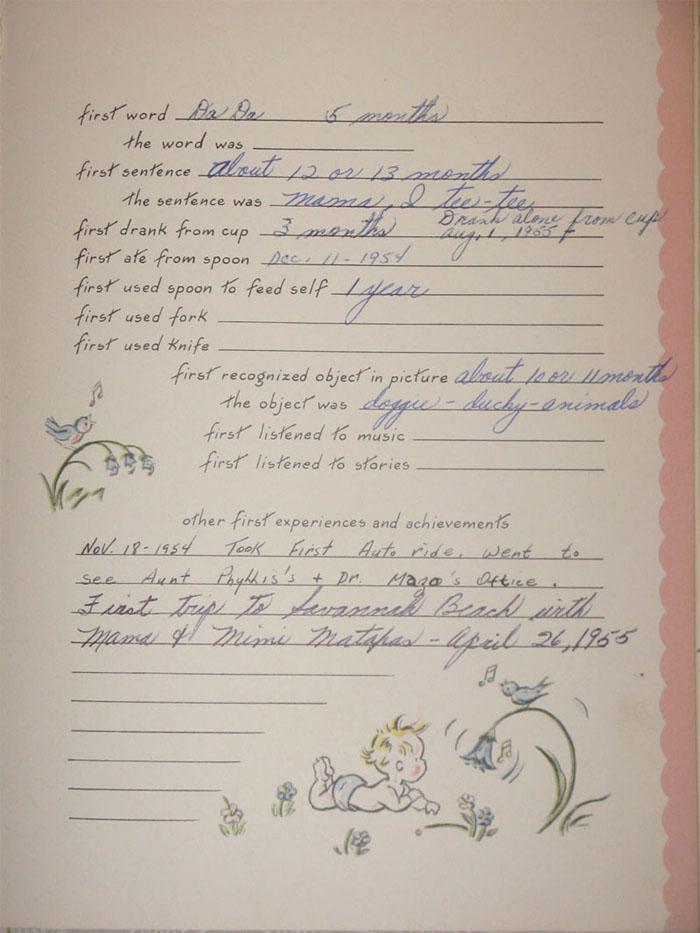 first word Da Da 5 months
the word was
first sentence about 12 or 13 months
the sentence was mama, I tee-tee
first drank from cup 3 months Drank alone from cup
Aug. 1, 1955
first ate from spoon Dec. 11-1954
first used spoon to feed self 1 year
first used fork
first used knife
first recognized object in picture about 10 or 11 months
the object was doggie - ducky - animals
first listened to music
first listened to stories
other first experiences and achievements
Nov. 18-1954 Took First Auto ride, went to
see Aunt Phyllis's + Dr. Mazo's Office.
First trip to Savannah Beach with
Mama & Mimi - April 26, 1955